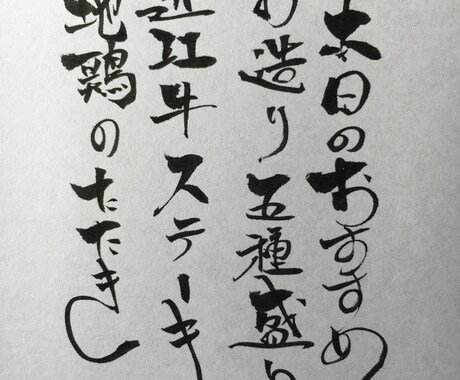 本日のおすすめ
お造り五種盛り
近江牛ステーキ
地鶏のたたき